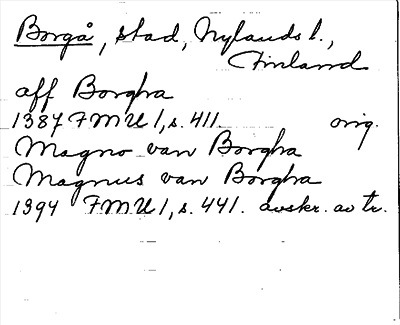 Borgå, stad, Nylands l.,
Finland
aff Borgha
1387 FMU 1, s. 411. orig.
Magno van Borgha
Magnus van Borgha
1394 FMU 1, s. 441. avskr. av tr.